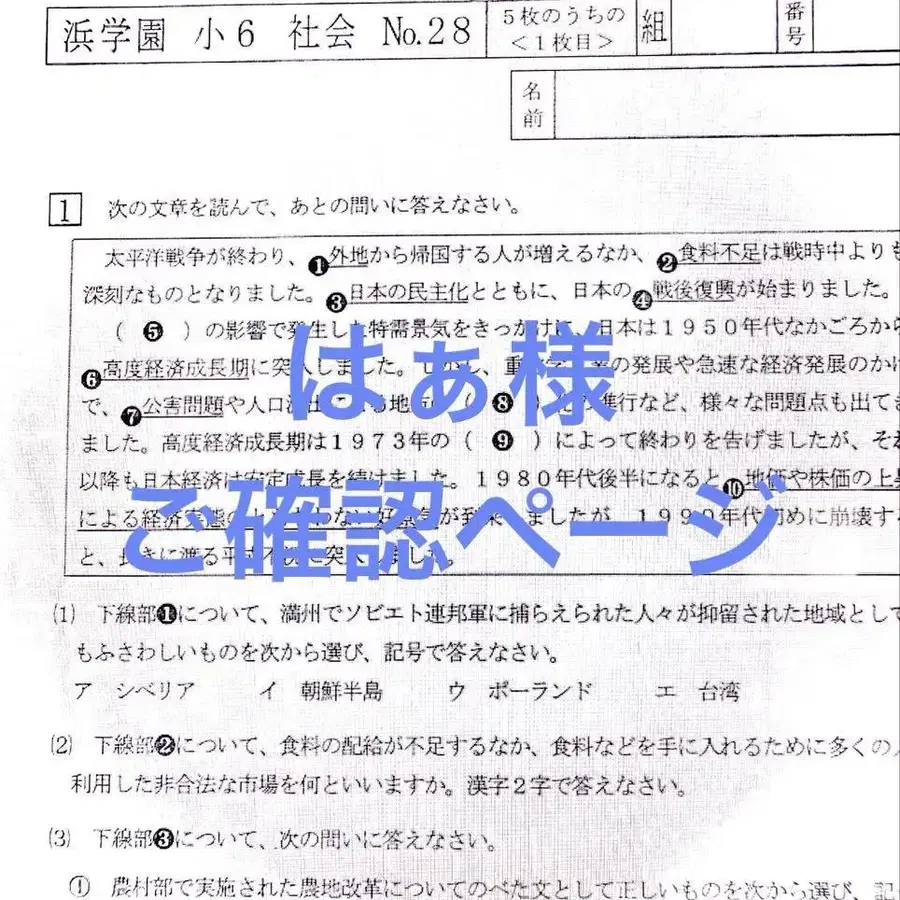 浜学園 小6 社会 No.28
5枚のうちの
<1枚目>
組
番号
名前
1 次の文章を読んで、あとの問いに答えなさい。
太平洋戦争が終わり、❶外地から帰国する人が増えるなか、❷食料不足は戦時中よりも
深刻なものとなりました。❸日本の民主化とともに、日本の❹戦後復興が始まりました。
( ❺ )の影響で発生した特需景気をきっかけに、日本は1950年代なかごろから
❻高度経済成長期に突入しました。しかし、重 の発展や急速な経済発展のかけ
で、❼公害問題や人口 ( ❽ ) 進行など、様々な問題点も出てき
ました。高度経済成長期は1973年の( ❾ )によって終わりを告げましたが、それ
以降も日本経済は安定成長を続けました。1980年代後半になると、❿地価や株価の上昇
による経済実態の ともなわない好景気が到来しましたが、1990年代初めに崩壊する
と、長きに渡る平成不況に突入しました。
はぁ様
ご確認ページ
(1) 下線部❶について、満州でソビエト連邦軍に捕らえられた人々が抑留された地域として
もふさわしいものを次から選び、記号で答えなさい。
ア シベリア イ 朝鮮半島 ウ ポーランド エ 台湾
(2) 下線部❷について、食料の配給が不足するなか、食料などを手に入れるために多くの人
利用した非合法な市場を何といいますか。漢字2字で答えなさい。
(3) 下線部❸について、次の問いに答えなさい。
① 農村部で実施された農地改革についてのべた文として正しいものを次から選び、記号